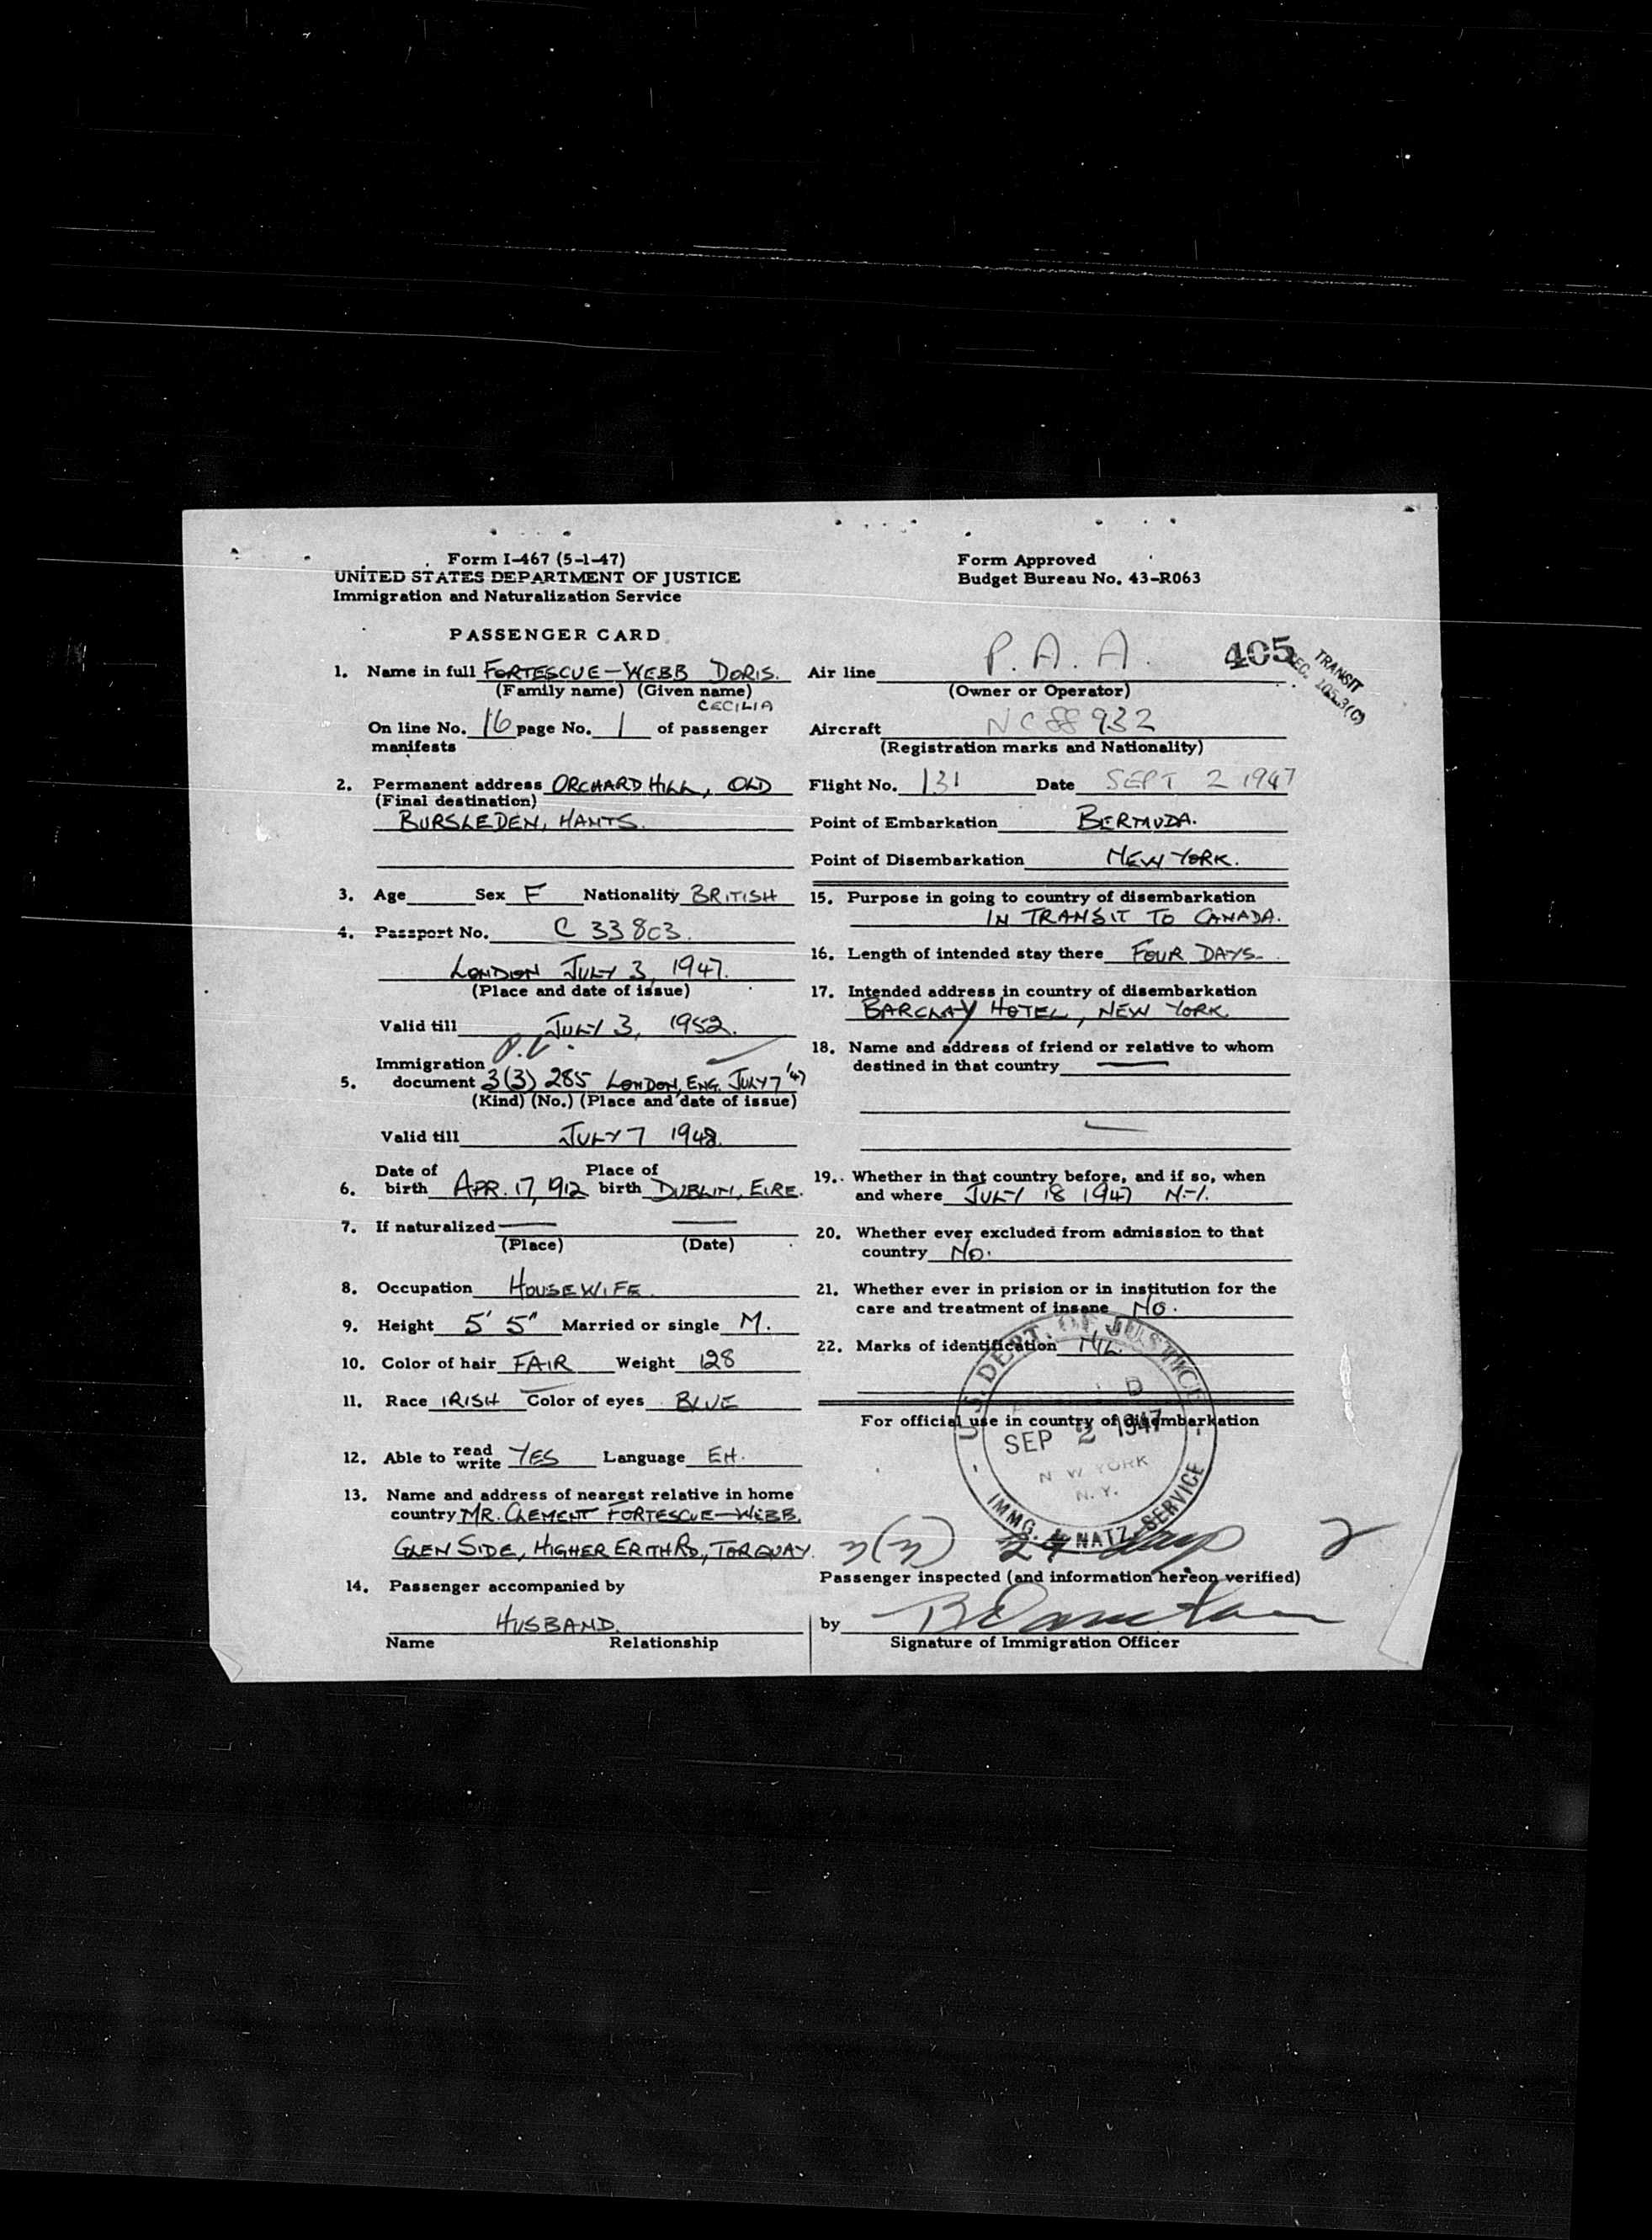 Form I-467 (5-1-47)
UNITED STATES DEPARTMENT OF JUSTICE
Immigration and Naturalization Service
Form Approved
Budget Bureau No. 43-R063
PASSENGER CARD
1. Name in full FORTESCUE-WEBB DORIS.
(Family name) (Given name)
CECILIA
On line No. 16 page No. 1 of passenger
manifests
2. Permanent address ORCHARD HILL, OLD
(Final destination)
BURSLEDEN, HANTS.
3. Age Sex F Nationality BRITISH
4. Passport No. C 33803.
LONDON JULY 3, 1947.
(Place and date of issue)
Valid till JULY 3, 1952.
P.V.
Immigration
5. document 3(3) 285 LONDON, ENG. JULY 7 '47
(Kind) (No.) (Place and date of issue)
Valid till JULY 7 1948.
Date of Place of
6. birth APR. 17, 1912 birth DUBLIN, EIRE.
7. If naturalized
(Place) (Date)
8. Occupation HOUSEWIFE.
9. Height 5' 5" Married or single M.
10. Color of hair FAIR Weight 128
11. Race IRISH Color of eyes BLUE
12. Able to read write YES Language EH.
13. Name and address of nearest relative in home
country MR. CLEMENT FORTESCUE-WEBB,
GLEN SIDE, HIGHER ERITH RD., TORQUAY.
14. Passenger accompanied by
HUSBAND.
Name Relationship
Air line P.A.A.
(Owner or Operator)
405
TRANSIT
SEC. 105.3(C)
Aircraft NC88932
(Registration marks and Nationality)
Flight No. 131 Date SEPT 2 1947
Point of Embarkation BERMUDA.
Point of Disembarkation NEW YORK.
15. Purpose in going to country of disembarkation
IN TRANSIT TO CANADA.
16. Length of intended stay there FOUR DAYS.
17. Intended address in country of disembarkation
BARCLAY HOTEL, NEW YORK
18. Name and address of friend or relative to whom
destined in that country
19. Whether in that country before, and if so, when
and where JULY 18 1947 N.Y.
20. Whether ever excluded from admission to that
country NO.
21. Whether ever in prision or in institution for the
care and treatment of insane NO.
22. Marks of identification NIL.
For official use in country of disembarkation
U.S. DEPT. OF JUSTICE
SEP 2 1947
NEW YORK
N.Y.
IMMG. & NATZ. SERVICE
3(3) 29 2
Passenger inspected (and information hereon verified)
by
Signature of Immigration Officer